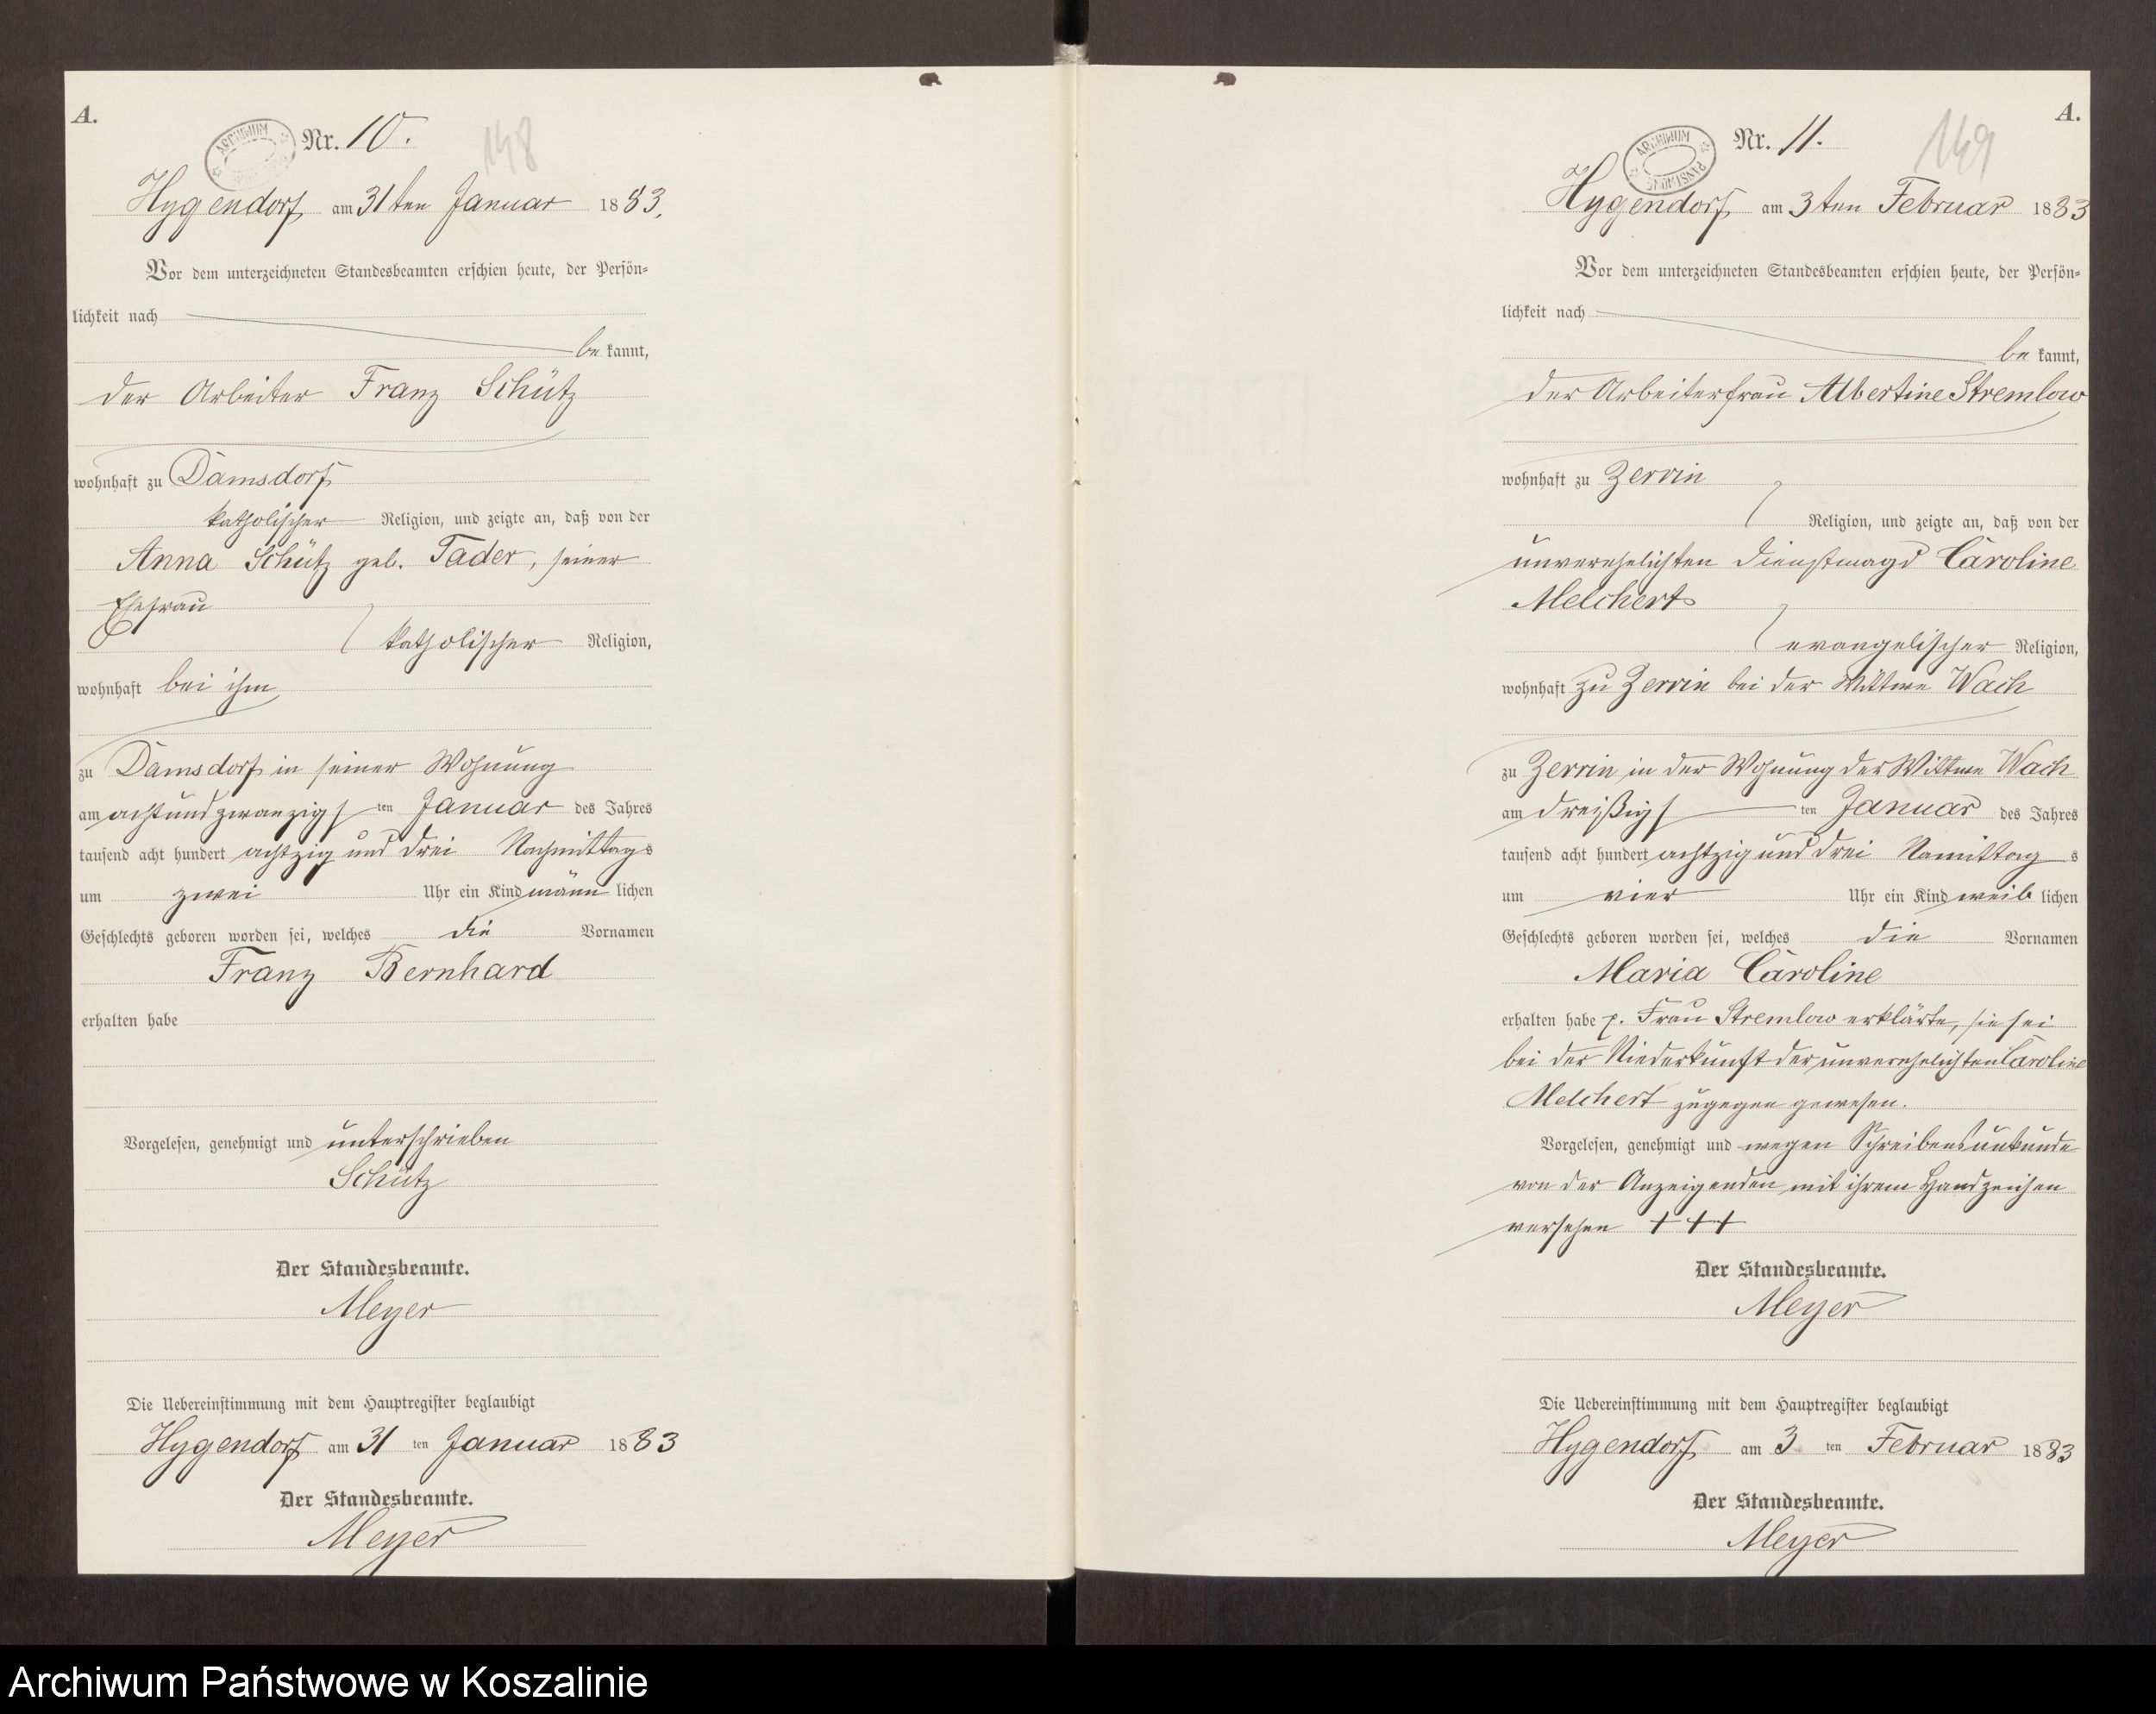 A.
ARCHIWUM
Nr. 10.
148
Hygendorf, am 31ten Januar 1883.
Vor dem unterzeichneten Standesbeamten erschien heute, der Persön-
lichkeit nach
be kannt,
der Arbeiter Franz Schütz
wohnhaft zu Damsdorf
katholischer Religion, und zeigte an, daß von der
Anna Schütz geb. Tader, seiner
Ehefrau
katholischer Religion,
wohnhaft bei ihm
zu Damsdorf in seiner Wohnung
am achtundzwanzigs ten Januar des Jahres
tausend acht hundert achtzig und drei Nachmittags
um zwei Uhr ein Kind männ lichen
Geschlechts geboren worden sei, welches die Vornamen
Franz Bernhard
erhalten habe
Vorgelesen, genehmigt und unterschrieben
Schütz
Der Standesbeamte.
Meyer
Die Uebereinstimmung mit dem Hauptregister beglaubigt
Hygendorf, am 31 ten Januar 1883
Der Standesbeamte.
Meyer
A.
ARCHIWUM PAŃSTWOWE
Nr. 11.
149
Hygendorf, am 3ten Februar 1883
Vor dem unterzeichneten Standesbeamten erschien heute, der Persön-
lichkeit nach
be kannt,
der Arbeiterfrau Albertine Stremlow
wohnhaft zu Zerrin
Religion, und zeigte an, daß von der
unverehelichten Dienstmagd Caroline
Melchert
evangelischer Religion,
wohnhaft zu Zerrin bei der Wittwe Wach
zu Zerrin in der Wohnung der Wittwe Wach
am dreißigs ten Januar des Jahres
tausend acht hundert achtzig und drei Namittag s
um vier Uhr ein Kind weib lichen
Geschlechts geboren worden sei, welches die Vornamen
Maria Caroline
erhalten habe p. Frau Stremlow erklärte, sie sei
bei der Niederkunft der unverehelichten Caroline
Melchert zugegen gewesen.
Vorgelesen, genehmigt und wegen Schreibensunkunde
von der Anzeigenden mit ihrem Handzeichen
versehen +++
Der Standesbeamte.
Meyer
Die Uebereinstimmung mit dem Hauptregister beglaubigt
Hygendorf, am 3 ten Februar 1883
Der Standesbeamte.
Meyer
Archiwum Państwowe w Koszalinie